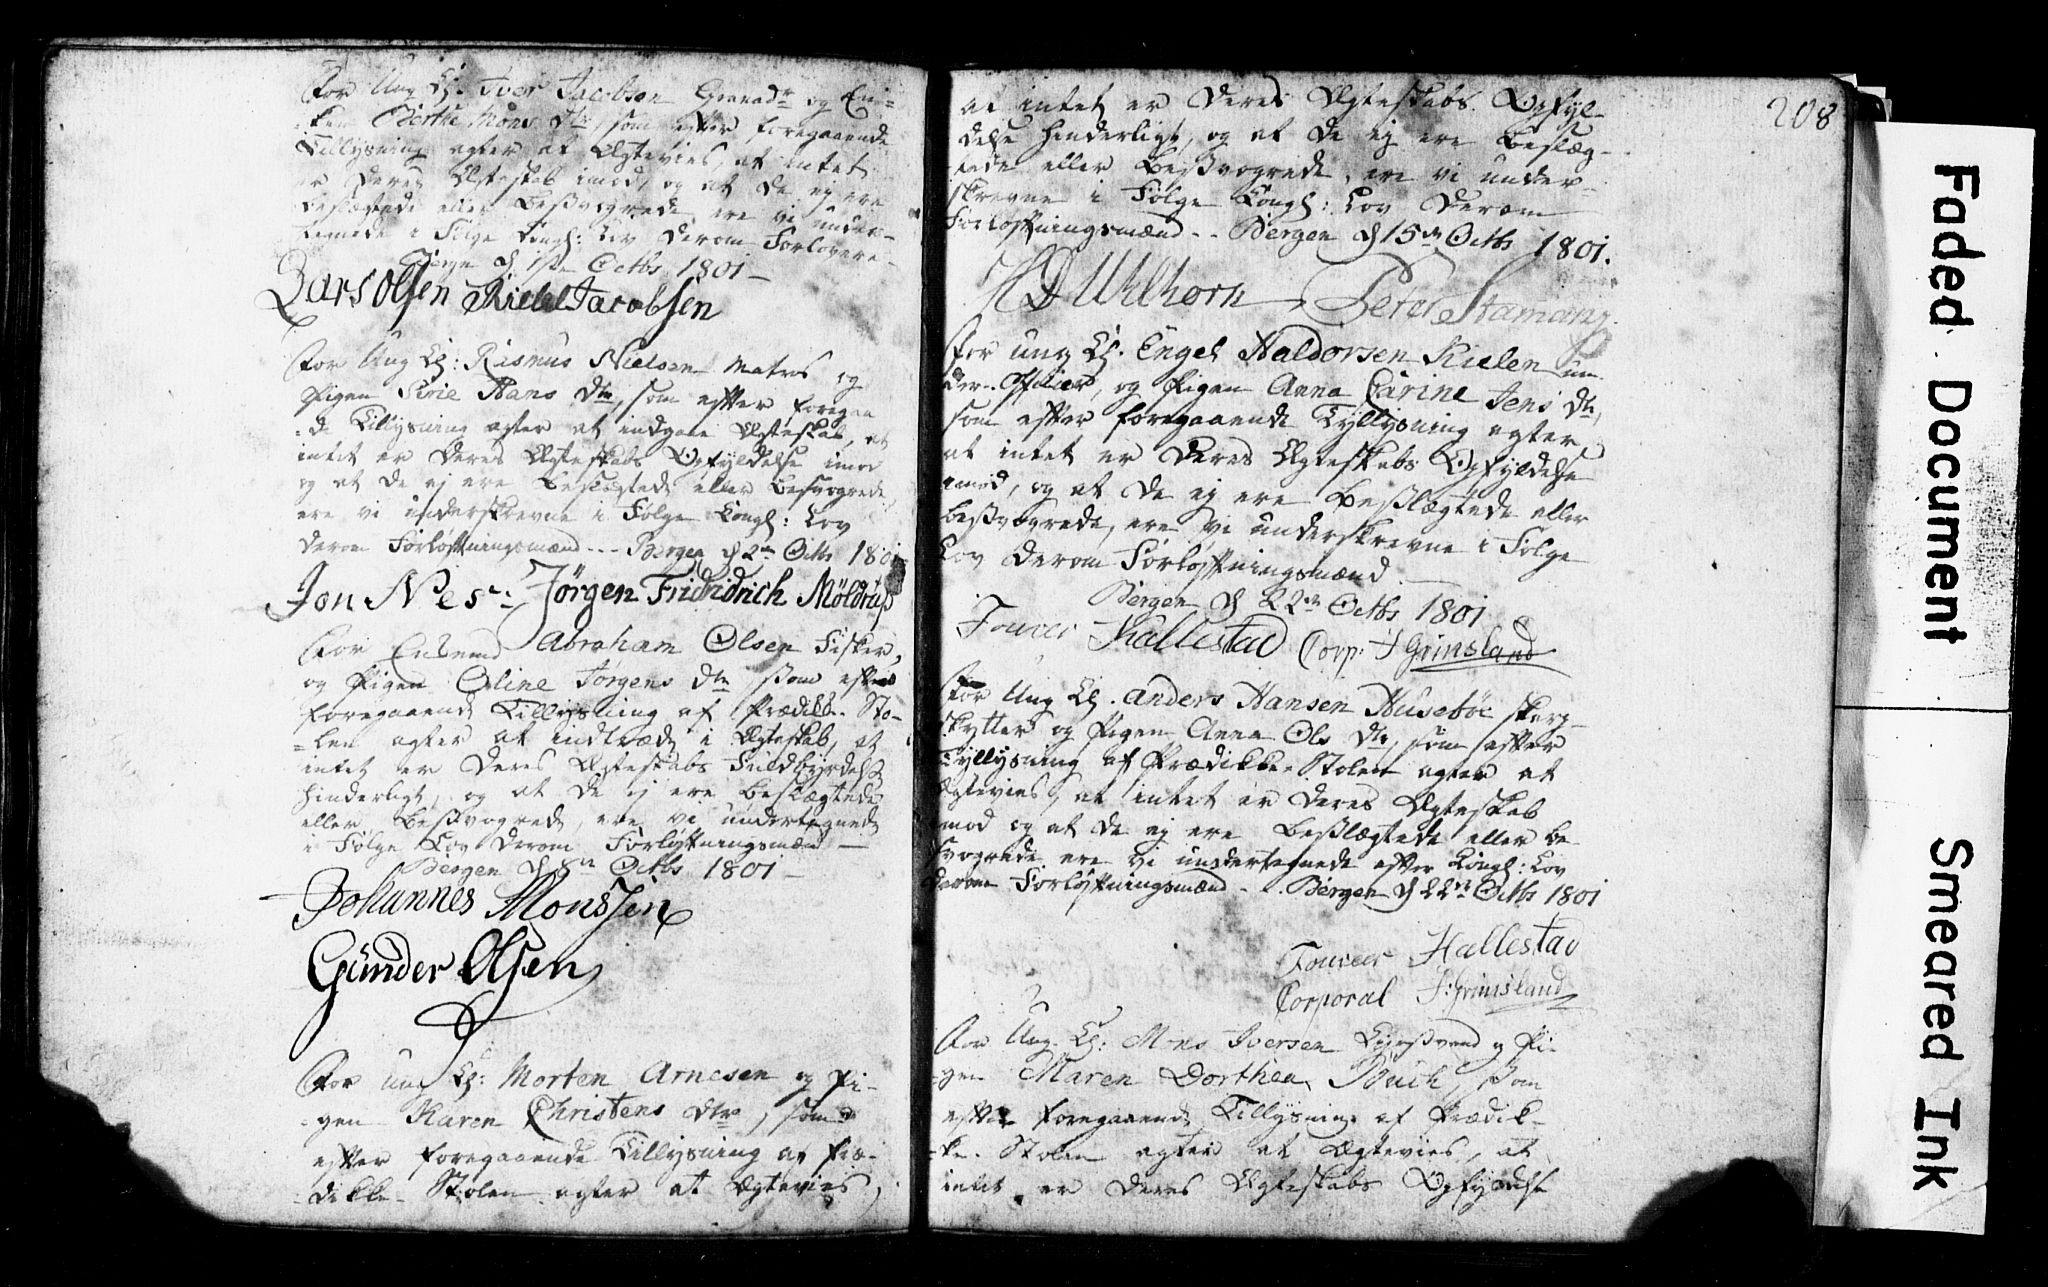 For Ung K: Iver Jacobsen Grenadr og En=
=ken Berthe Mons Dtr, som efter foregaaende
Tillysning agter at Ægtevies, at intet
er deres Ægteskab imod, og at de ej ere
beslægtede eller besvogrede, ere vi under=
tegnede i Følge Kongl: Lov derom Forlovere
Bergen d 1ste Octbr 1801 –
Lars Olsen Kield Jacobsen
For Ung K: Rasmus Nielsen Matros og
Pigen Sirie Hans Dtr, som efter foregaa
=de Tillysning agter at indgaae Ægteskab, at
intet er deres Ægteskabs Opfyldelse imod
og at de ej ere beslægtede eller besvogrede,
ere vi underskrevne i Følge Kongl: Lov
derom Forlovtningsmænd --- Bergen d 2en Octbr 1801
Jon Nes: Jörgen Fridridrich Möldrup
For Enkemd Abraham Olsen Fisker,
og Pigen Oline Jørgens Dtr som efter
foregaaende Tillysning af Prædike Sto=
=len agter at indtræde i Ægteskab, at
intet er deres Ægteskabs Fuldbyrdelse
hinderligt, og at de ej ere beslægtede
eller besvogrede, ere vi undertegnede
i Følge Lov derom Forlovtningsmænd –
Bergen d 8n Octbr 1801 –
Johannes Monssen
Günder Olsen
For ung K: Morten Arnesen og Pi=
=gen Karen Christens Dtr, som
efter foregaaende Tillysning af Præ=
dikke Stolen agter at Ægtevies,
208
at intet er deres Ægteskabs Opfyl=
delse hinderligt, og at de ej ere beslæg=
tede eller besvogrede, ere vi under=
skrevne i Følge Kongl: Lov derom
Forlovtningsmænd -- Bergen d 15de Octbr 1801.
HD Uhlhorn Peter Stamang
For ung K. Engel Haldorsen Kielen un
der-Officier, og Pigen Anna Carine Jens Dtr,
som efter foregaaende Tyllysning agter
at intet er deres Ægteskabs Opfyldelse
imod, og at de ej ere beslægtede eller
besvogrede, ere vi underskrevne i Følge
Lov derom Forlovtningsmænd
Bergen d 22de Octbr 1801
Fourer Hallestad Corp: J Grimsland
For Ung K. Anders Hansen Huseböe skarp=
skytter og Pigen Anna Ols Dtr, som efter
Tyllysning af Prædikke-Stolen agter at
Ægtevies, at intet er deres Ægteskab
imod og at de ej ere beslægtede eller be
svogrede, ere vi undertegnede efter Kongl: Lov
derom Forlovtningsmænd -. Bergen d 22de Octbr 1801
Foureer Hallestad
Corporal J: Grimsland
For Ung K: Mons Iversen og Pi=
=gen Maren Dorthea Buch, som
efter foregaaende Tillysning af Prædik=
=ke-Stolen agter at Ægtevies, at
intet er deres Ægteskabs Opfyldelse
Faded Document
Smeared Ink